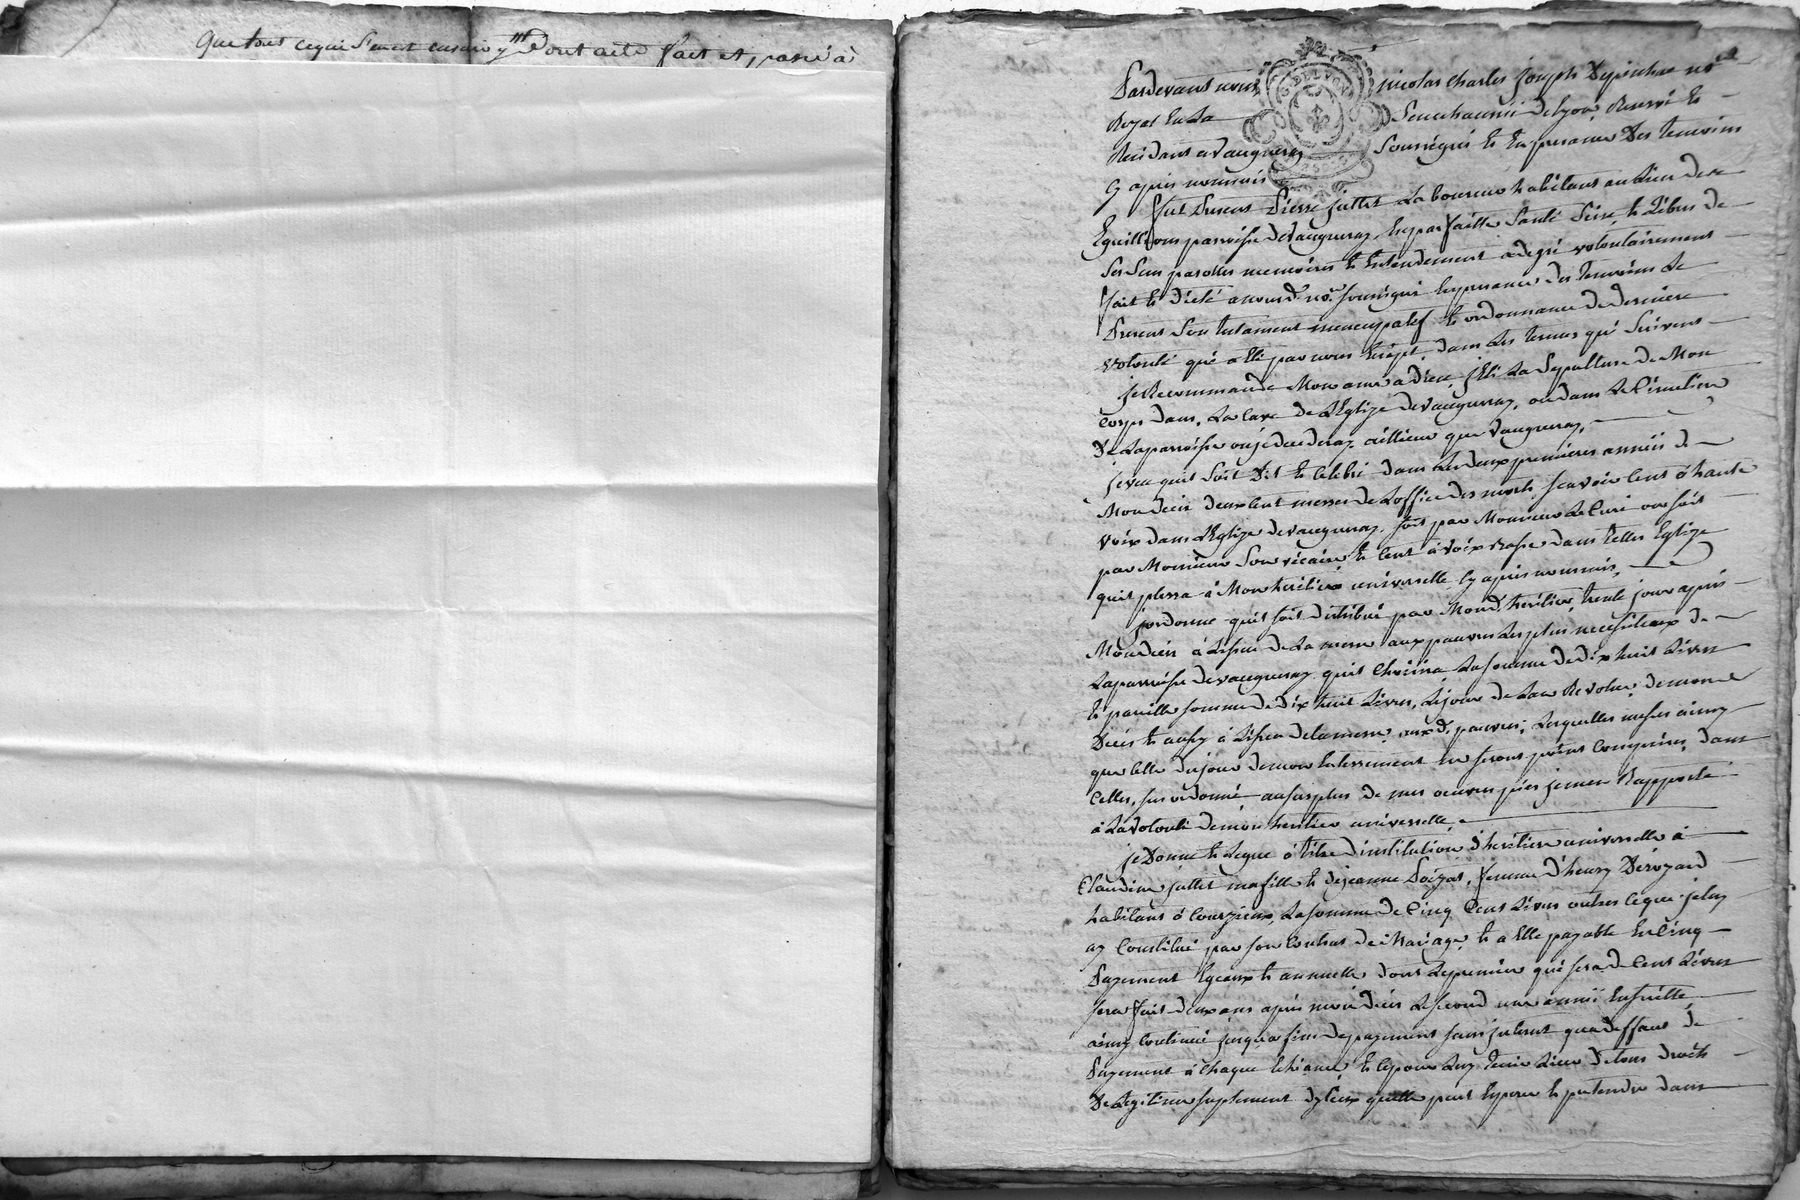 Que tout ce qui s'en est ensuivy Dont acte fait et passé à
G. DE LYON
Pardevant nous nicolas charles joseph Depinchat nore
Royal En La Senechaussée de lyon, Reservé et
Residant a Vaugneray Soussigné et En presence Des temoins
Cy apres nommés
fut Present Pierre juttet Laboureur habitant au Lieu de
Eguillion parroisse de Vaugneray, En parfaitte Santé Sain, et Libre de
Ses Sens parolles memoires et Entendement a de gré volontairement
fait et dicté a nous d. nore soussigné En presence des temoins Le
Present Son testament nuncupatif et ordonnance de derniere
volonté qui a été par nous Ecript, dans Les termes qui Suivent
je Recommande Mon ame a dieu, j'Eli La Sepulture de Mon
Corps dans, La Cave de L'Eglize de Vaugneray, ou dans Le Cimetiere
De La parroisse ou je decederay, aillieur que Vaugneray,
je veu quil Soit Dit et Celebré dans Les deux premieres années de
Mon decés deux Cent messes de L'office des morts, scavoir Cent à haute
voix dans L'Eglize de Vaugneray, soit par Monsieur Le Curé ou soit
par Monsieur Son vicaire, et Cent à voix basse dans telles Eglize
quil plaira à Mon heritiere universelle Cy apres nommée,
jordonne quil soit distribué par Mond. heritier, trente jour apres
Mon decés à L'issue de La messe aux pauvres Les plus necessiteux de
La parroisse de Vaugneray quil Choisira La somme de dix huit Livres
et pareille somme de dix huit Livres, Le jour de L'an Revolue, de mon
Decés et aussy à L'issue de la messe, aux d. pauvres; Lesquelles messes ainsy
que Celle du jour de mon Enterrement ne seront point Comprises, dans
Celles, sus ordonné, au surplus de mes oeuvres pies je men Rapporte
à La volonté de mon heritier universelle,
je Donne et Legue à titre d'institution d'heritiere universelle à
Claudine juttet ma fille et de jeanne Poizat, femme d'henry Berogard
habitant à Courzieux, La somme de Cinq Cent Livres outres Ce que je luy
ay Constitué par son Contrat de Mariage, et a Elle payable En Cinq
Payement Egaux et annuelle dont Le premier qui sera de Cent Livres
sera fait deux ans apres mon decés Le second une année Ensuitte
ainsy Continué jusqu'a fin de payement sans jnterest qu'a deffaut de
Payement à Chaque Echéance, et Ce pour Luy tenir Lieu de tous droits
De Legitime suplement dycelux quelle peut Esperer et pretendre dans